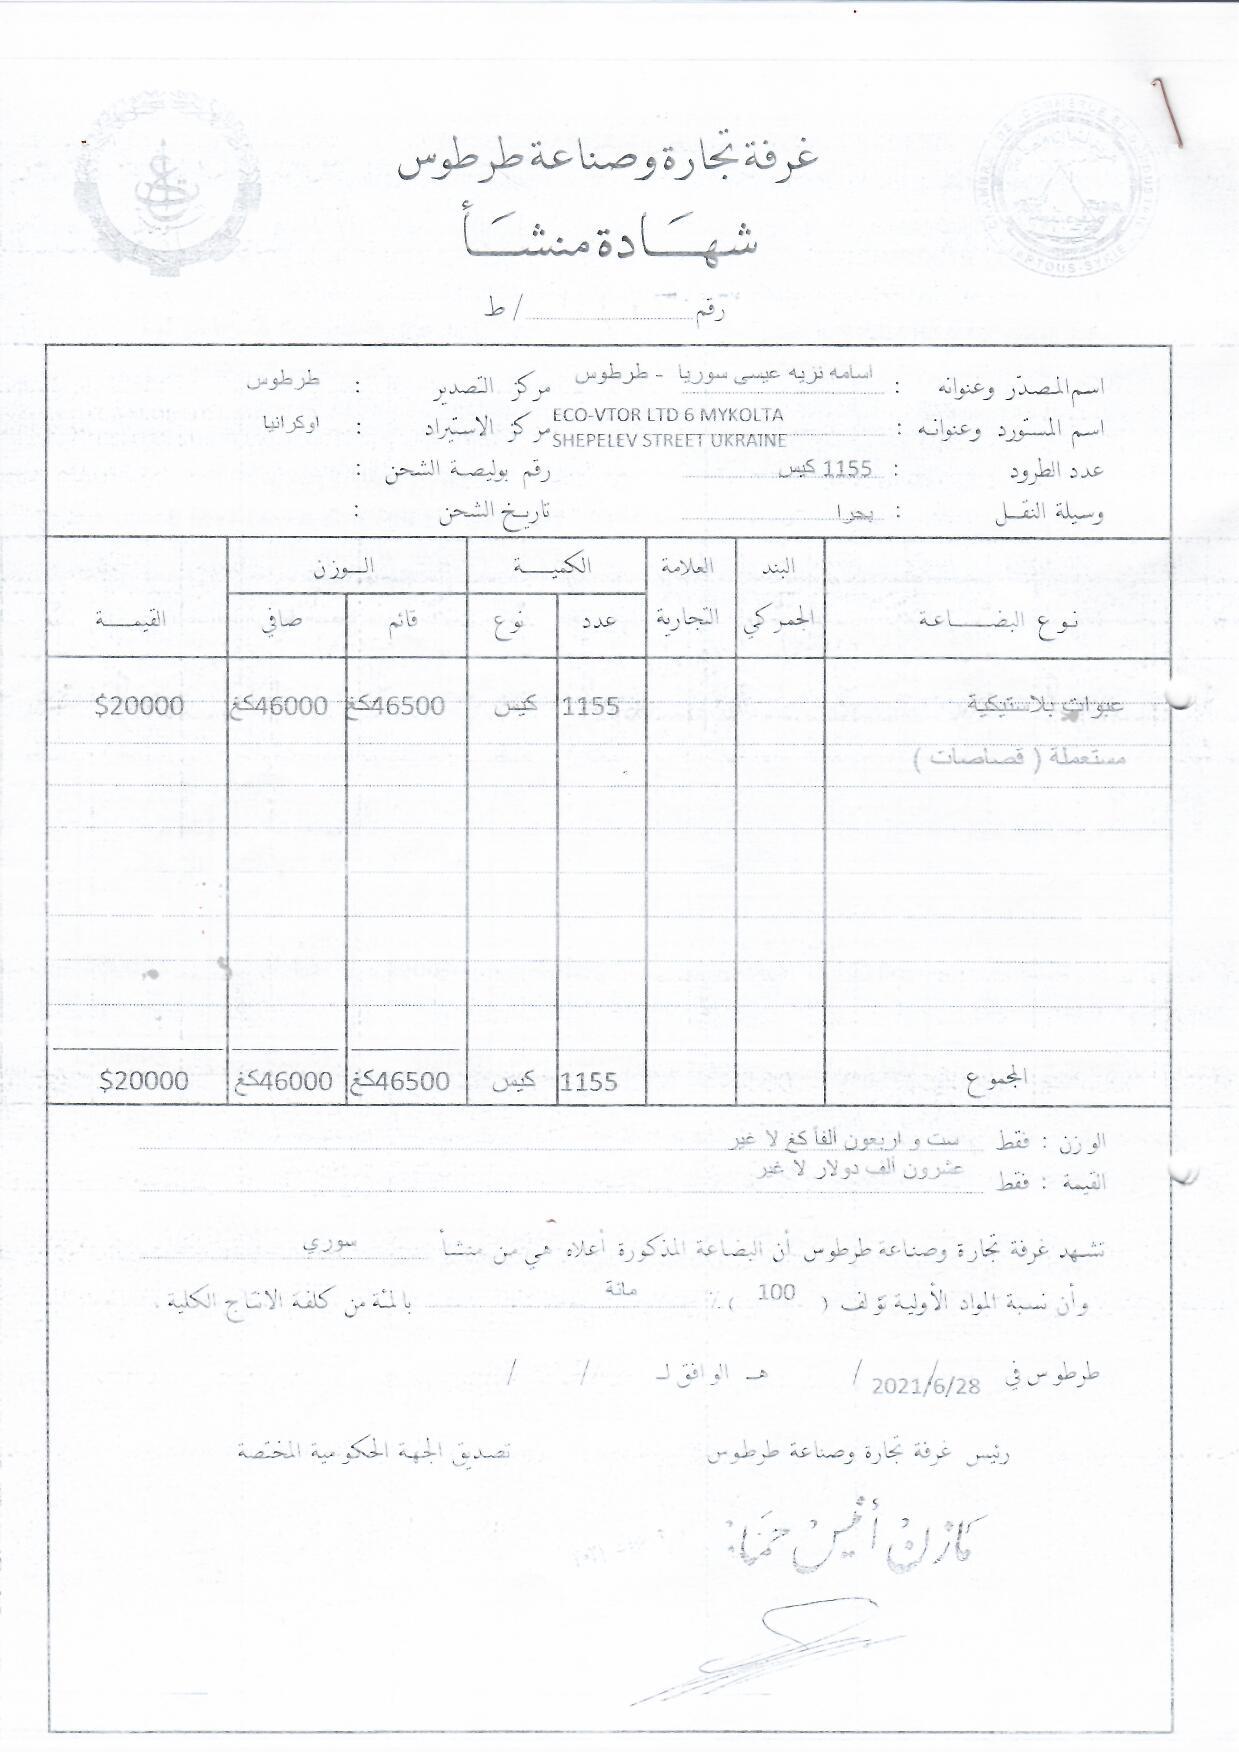 غرفة تجارة وصناعة طرطوس
شهادة منشأ
رقم / ط
اسم المصدّر وعنوانه : اسامه نزيه عيسى سوريا - طرطوس مركز التصدير : طرطوس
اسم المستورد وعنوانه : ECO-VTOR LTD 6 MYKOLTA SHEPELEV STREET UKRAINE مركز الاستيراد : اوكرانيا
عدد الطرود : 1155 كيس رقم بوليصة الشحن :
وسيلة النقل : بحرا تاريخ الشحن :
نوع البضاعة البند الجمركي العلامة التجارية الكمية الوزن القيمة
عدد نوع قائم صافي
عبوات بلاستيكية 1155 كيس 46500كغ 46000كغ $20000
مستعملة ( قصاصات )
المجموع 1155 كيس 46500كغ 46000كغ $20000
الوزن : فقط ست و اربعون ألفاً كغ لا غير
القيمة : فقط عشرون ألف دولار لا غير
تشهد غرفة تجارة وصناعة طرطوس أن البضاعة المذكورة أعلاه هي من منشأ سوري
وأن نسبة المواد الأولية تؤلف ( 100 ) ٪ مائة بالمئة من كلفة الانتاج الكلية .
طرطوس في 2021/6/28 / هـ الموافق لـ / /
رئيس غرفة تجارة وصناعة طرطوس تصديق الجهة الحكومية المختصة
مازن أنيس حماد